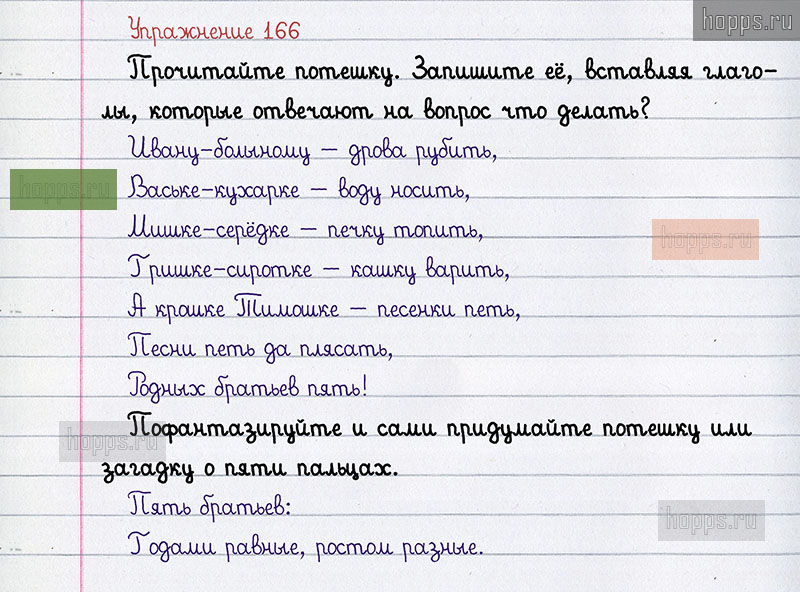 hopps.ru
Упражнение 166
Прочитайте потешку. Запишите её, вставляя глаго-
лы, которые отвечают на вопрос что делать?
Ивану-большому — дрова рубить,
hopps.ru
Ваське-кухарке — воду носить,
Мишке-серёдке — печку топить,
hopps.ru
Гришке-сиротке — кашку варить,
А крошке Тимошке — песенки петь,
Песни петь да плясать,
Родных братьев пять!
Пофантазируйте и сами придумайте потешку или
hopps.ru
загадку о пяти пальцах.
Пять братьев:
hopps.ru
Годами равные, ростом разные.